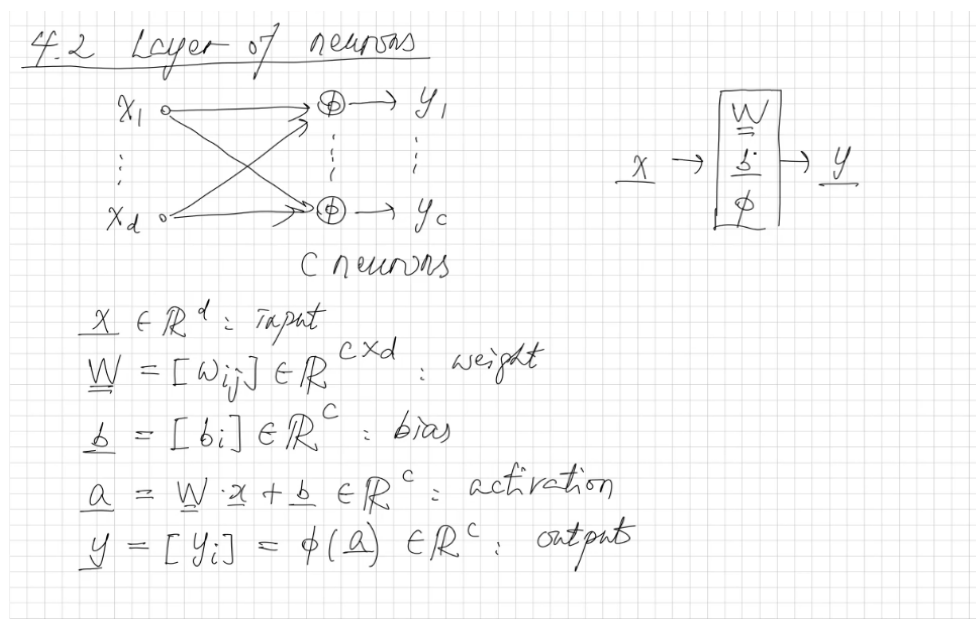 4.2 Layer of neurons
x₁ ϕ y₁
⋮ ⋮ ⋮
x_d ϕ y_c
c neurons
x → W b ϕ → y
x ∈ ℝᵈ : input
W = [w_ij] ∈ ℝ^(c×d) : weight
b = [b_i] ∈ ℝ^c : bias
a = W · x + b ∈ ℝ^c : activation
y = [y_i] = ϕ(a) ∈ ℝ^c : output